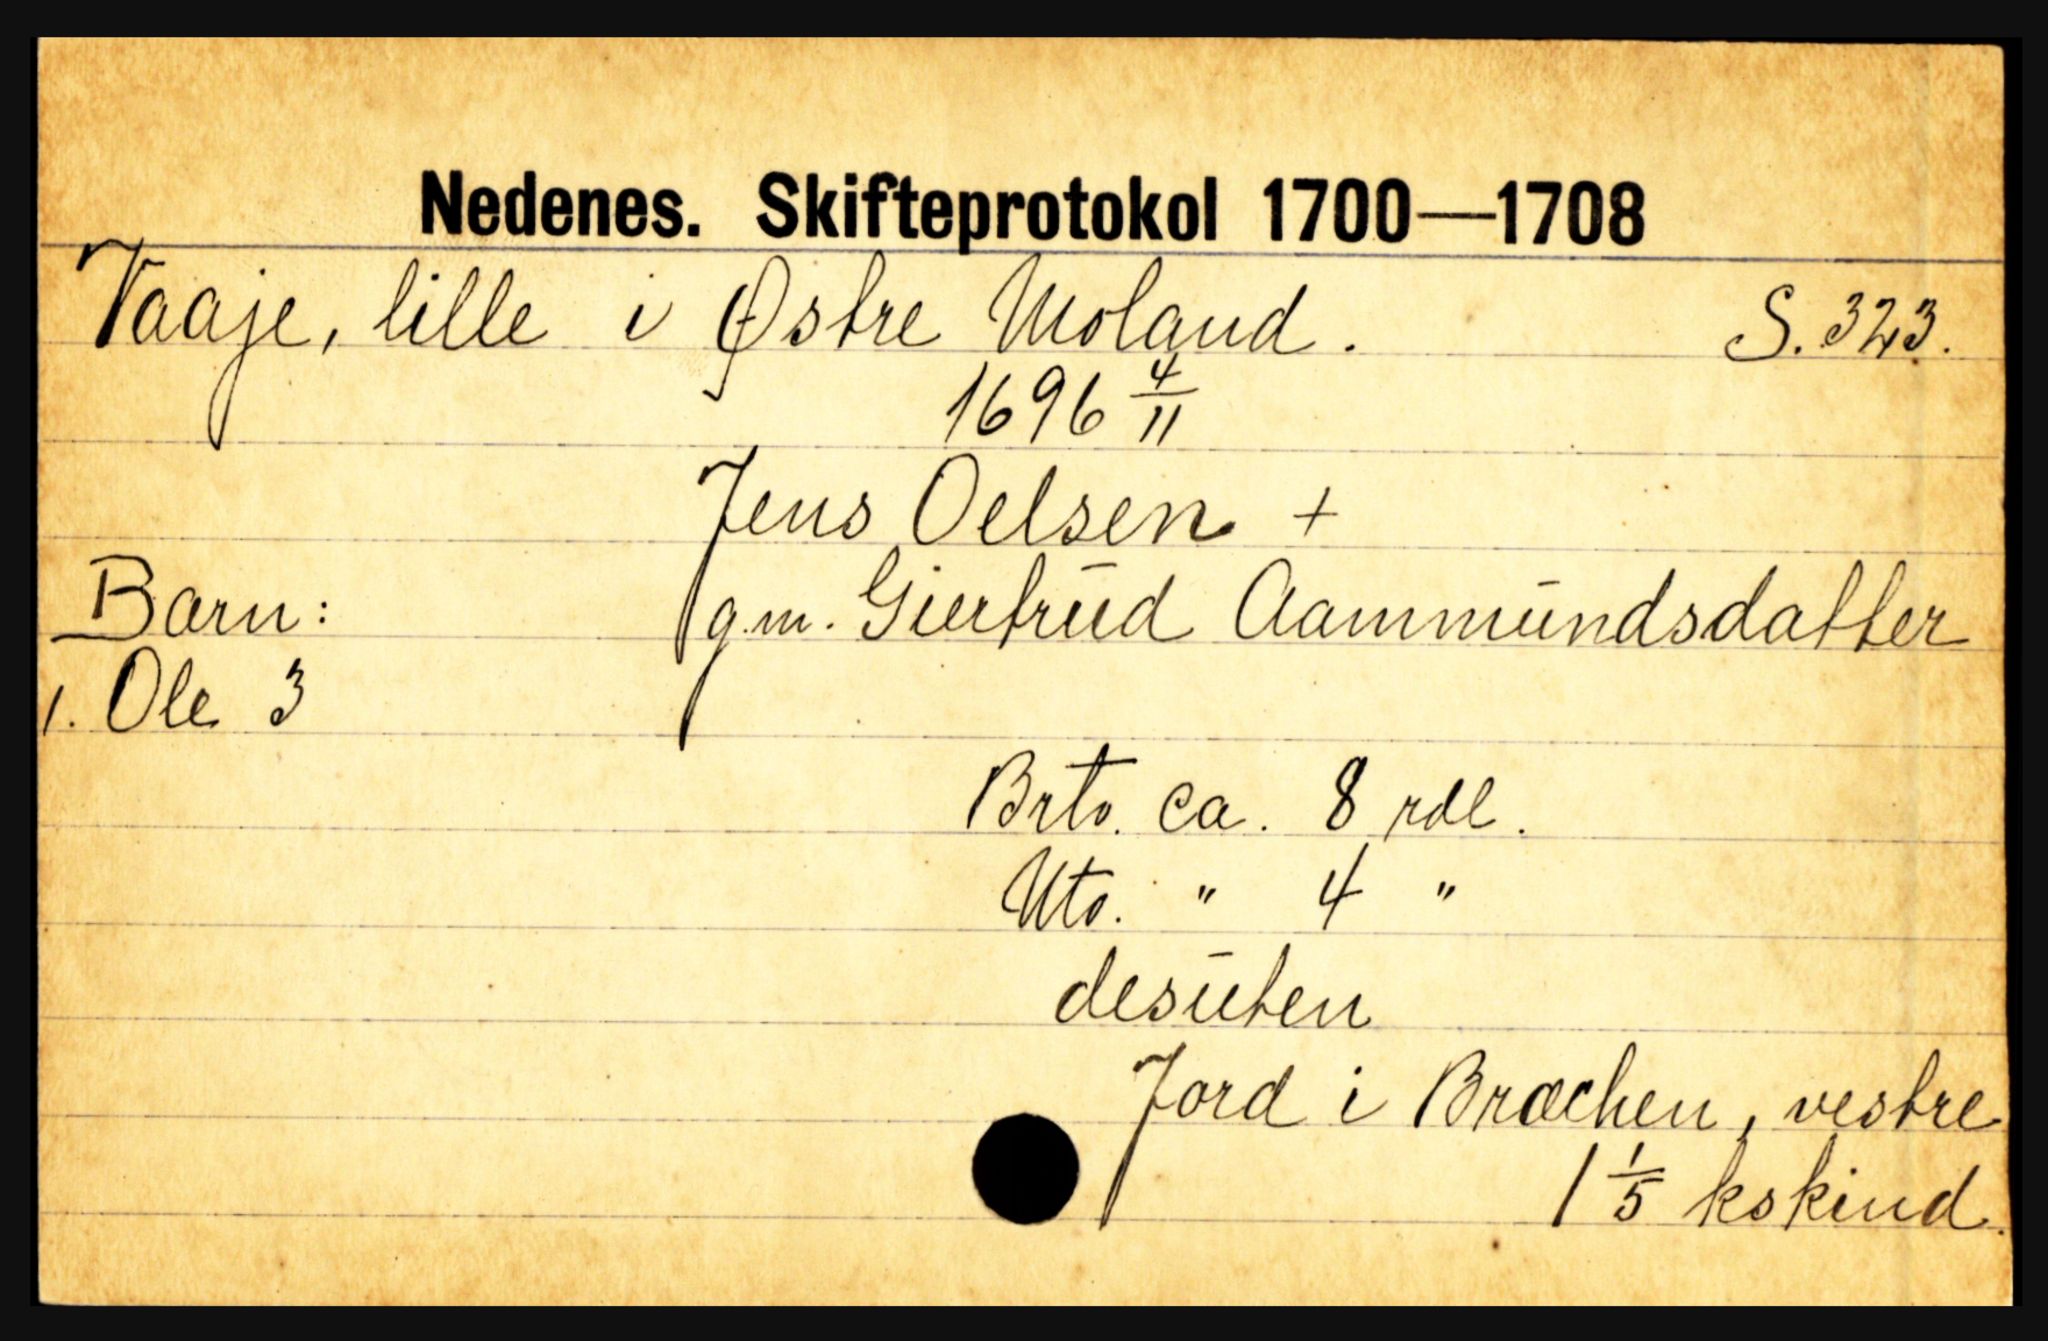 Nedenes. Skifteprotokol 1700—1708
Vaaje, lille i Østre Moland. S. 323.
1696 4/11
Jens Oelsen +
Barn: g.m. Giertrŭd Aammŭndsdatter
1. Ole 3
Brto. ca. 8 rdl.
Nto. " 4 "
desŭten
Jord i Bræchen, vestre
1 1/5 kskind.